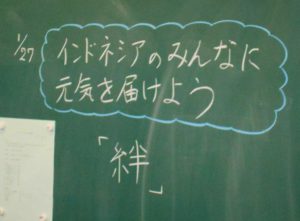 1/27
インドネシアのみんなに
元気を届けよう
「絆」